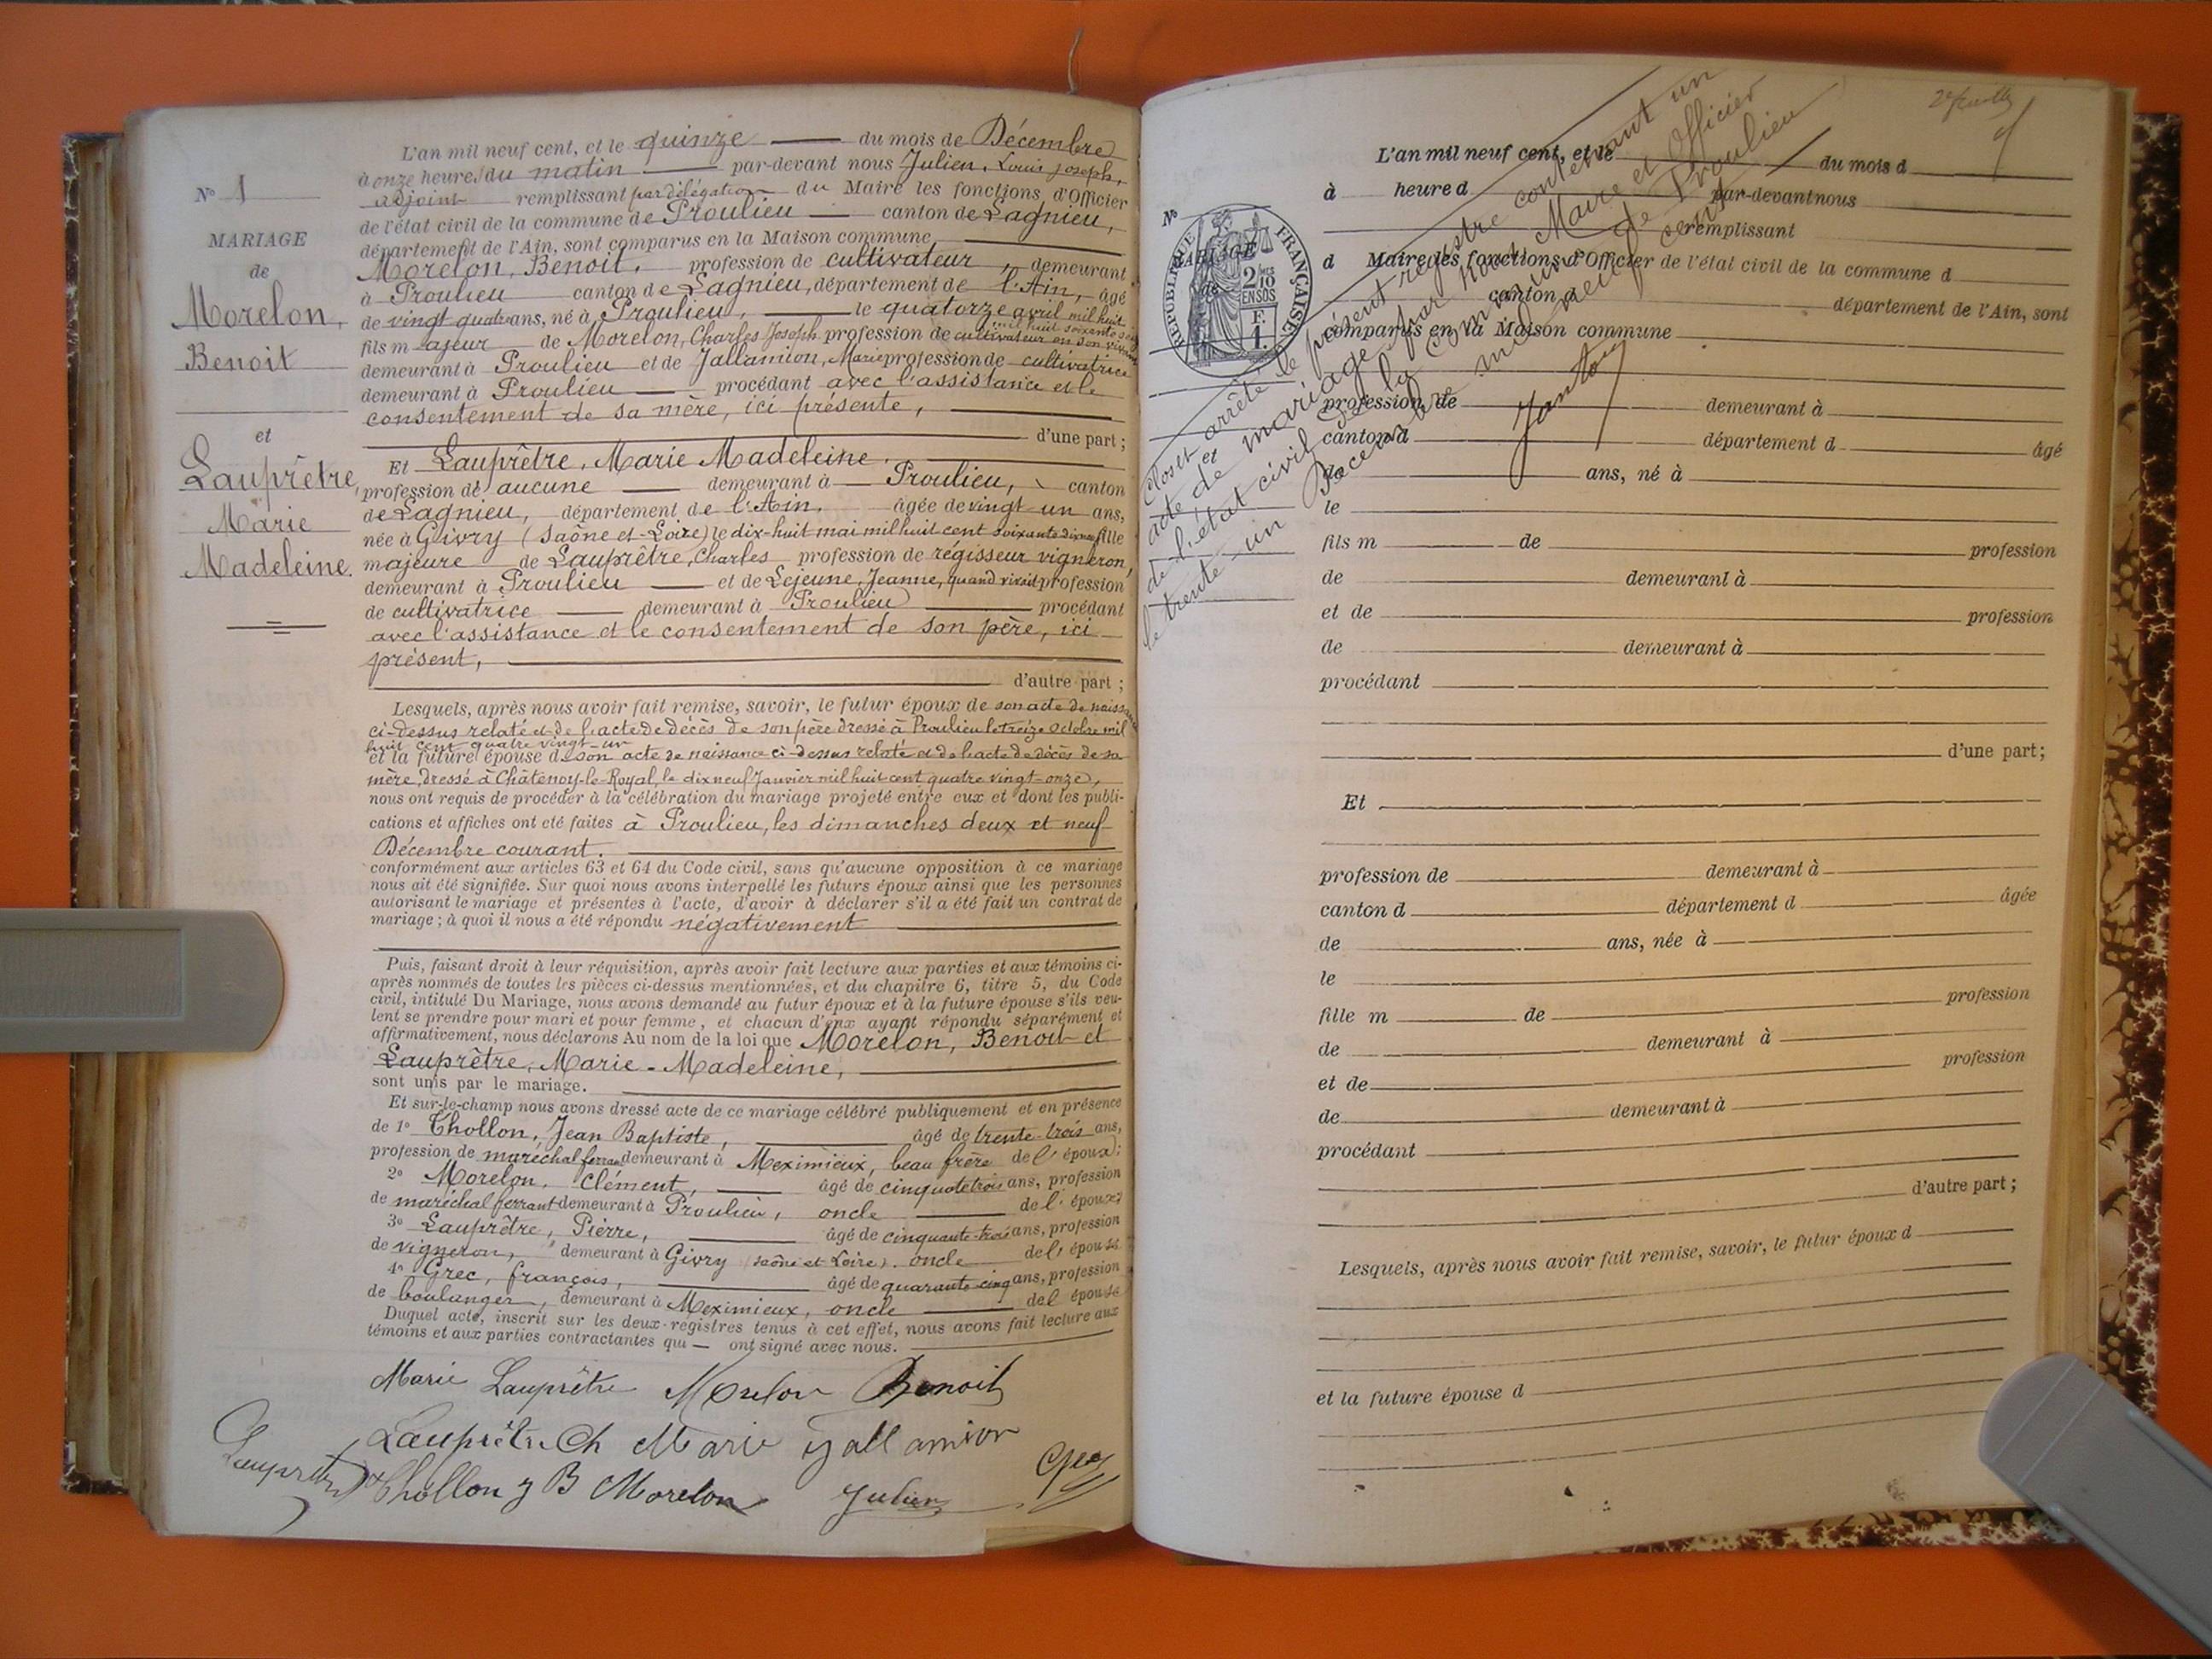 N° 1
MARIAGE
de
Morelon,
Benoit
et
Lauprêtre,
Marie
Madeleine.
L'an mil neuf cent, et le quinze du mois de Décembre
à onze heures du matin par-devant nous Julien, Louis Joseph,
adjoint remplissant par délégation du Maire les fonctions d'Officier
de l'état civil de la commune de Proulieu canton de Lagnieu,
département de l'Ain, sont comparus en la Maison commune
Morelon, Benoit, profession de cultivateur, demeurant
à Proulieu canton de Lagnieu, département de l'Ain, âgé
de vingt quatre ans, né à Proulieu, le quatorze avril mil huit
cent soixante seize
fils majeur de Morelon, Charles Joseph profession de cultivateur en son vivant
demeurant à Proulieu et de Jallamion, Marie profession de cultivatrice
demeurant à Proulieu procédant avec l'assistance et le
consentement de sa mère, ici présente,
d'une part ;
Et Lauprêtre, Marie Madeleine.
profession de aucune demeurant à Proulieu, canton
de Lagnieu, département de l'Ain. âgée de vingt-un ans,
née à Givry (Saône-et-Loire) le dix-huit mai mil huit cent soixante dix neuf fille
majeure de Lauprêtre, Charles profession de régisseur vigneron,
demeurant à Proulieu et de Lejeune, Jeanne, quand vivait profession
de cultivatrice demeurant à Proulieu procédant
avec l'assistance et le consentement de son père, ici
présent,
d'autre part ;
Lesquels, après nous avoir fait remise, savoir, le futur époux de son acte de naissance
ci-dessus relaté et de l'acte de décès de son père dressé à Proulieu le treize octobre mil
huit cent quatre vingt-un
et la future épouse de son acte de naissance ci-dessus relaté et de l'acte de décès de sa
mère, dressé à Châtenoy-le-Royal, le dix neuf Janvier mil huit cent quatre vingt-onze,
nous ont requis de procéder à la célébration du mariage projeté entre eux et dont les publi-
cations et affiches ont été faites à Proulieu, les dimanches deux et neuf
Décembre courant.
conformément aux articles 63 et 64 du Code civil, sans qu'aucune opposition à ce mariage
nous ait été signifiée. Sur quoi nous avons interpellé les futurs époux ainsi que les personnes
autorisant le mariage et présentes à l'acte, d'avoir à déclarer s'il a été fait un contrat de
mariage ; à quoi il nous a été répondu négativement
Puis, faisant droit à leur réquisition, après avoir fait lecture aux parties et aux témoins ci-
après nommés de toutes les pièces ci-dessus mentionnées, et du chapitre 6, titre 5, du Code
civil, intitulé Du Mariage, nous avons demandé au futur époux et à la future épouse s'ils veu-
lent se prendre pour mari et pour femme, et chacun d'eux ayant répondu séparément et
affirmativement, nous déclarons Au nom de la loi que Morelon, Benoit et
Lauprêtre, Marie-Madeleine,
sont unis par le mariage.
Et sur-le-champ nous avons dressé acte de ce mariage célébré publiquement et en présence
de 1° Thollon, Jean Baptiste, âgé de trente-trois ans,
profession de maréchal ferrant demeurant à Meximieux, beau frère de l'époux ;
2° Morelon, Clément, âgé de cinquante trois ans, profession
de maréchal ferrant demeurant à Proulieu, oncle de l'époux ;
3° Lauprêtre, Pierre, âgé de cinquante-trois ans, profession
de vigneron, demeurant à Givry (Saône et Loire). oncle de l'épouse
4° Grec, françois, âgé de quarante-cinq ans, profession
de boulanger, demeurant à Meximieux, oncle de l'épouse
Duquel acte, inscrit sur les deux registres tenus à cet effet, nous avons fait lecture aux
témoins et aux parties contractantes qui ont signé avec nous.
Marie Lauprêtre Morelon Benoit
Lauprêtre Ch Marie Jallamion
Lauprêtre Thollon J B Morelon Julien Grec
2e feuille
N°
MARIAGE
de
et
RÉPUBLIQUE FRANÇAISE
2/10 EN SUS
F.
1.
Clos et arrêté le présent registre contenant un
acte de mariage par nous, Maire et Officier
de l'état civil de la commune de Proulieu
le trente-un Décembre mil neuf cent
Janton
L'an mil neuf cent, et le du mois d
à heure d par-devant nous
remplissant
d Maire les fonctions d'Officier de l'état civil de la commune d
canton d département de l'Ain, sont
comparus en la Maison commune
profession de demeurant à
canton d département d âgé
de ans, né à
le
fils m de profession
de demeurant à
et de profession
de demeurant à
procédant
d'une part ;
Et
profession de demeurant à
canton d département d âgée
de ans, née à
le
fille m de profession
de demeurant à
et de profession
de demeurant à
procédant
d'autre part ;
Lesquels, après nous avoir fait remise, savoir, le futur époux d
et la future épouse d